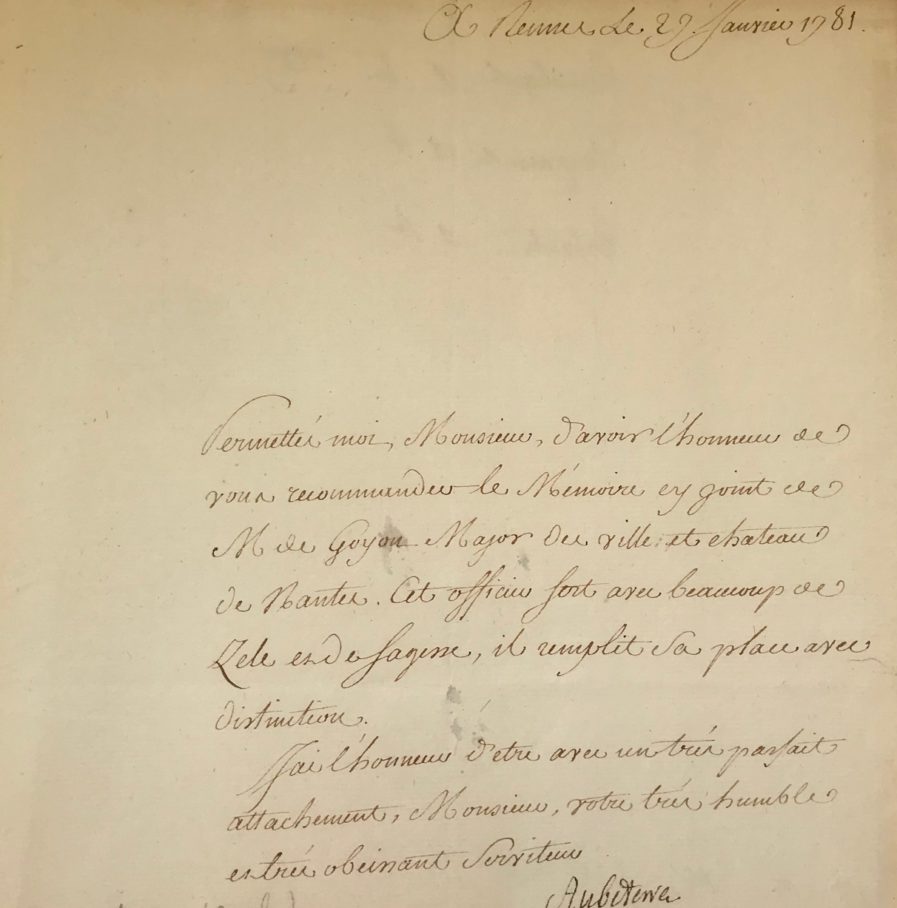 A Rennes Le 27 Janvier 1781.
Permettés moi, Monsieur, d'avoir l'honneur de
vous recommander le Mémoire cy joint de
M de Goyon Major des ville et chateau
de Nantes. Cet officier sert avec beaucoup de
Zele et de sagesse, il remplit sa place avec
distinction.
J'ai l'honneur d'etre avec un trés parfait
attachement, Monsieur, votre trés humble
et trés obeissant Serviteur
Aubeterre